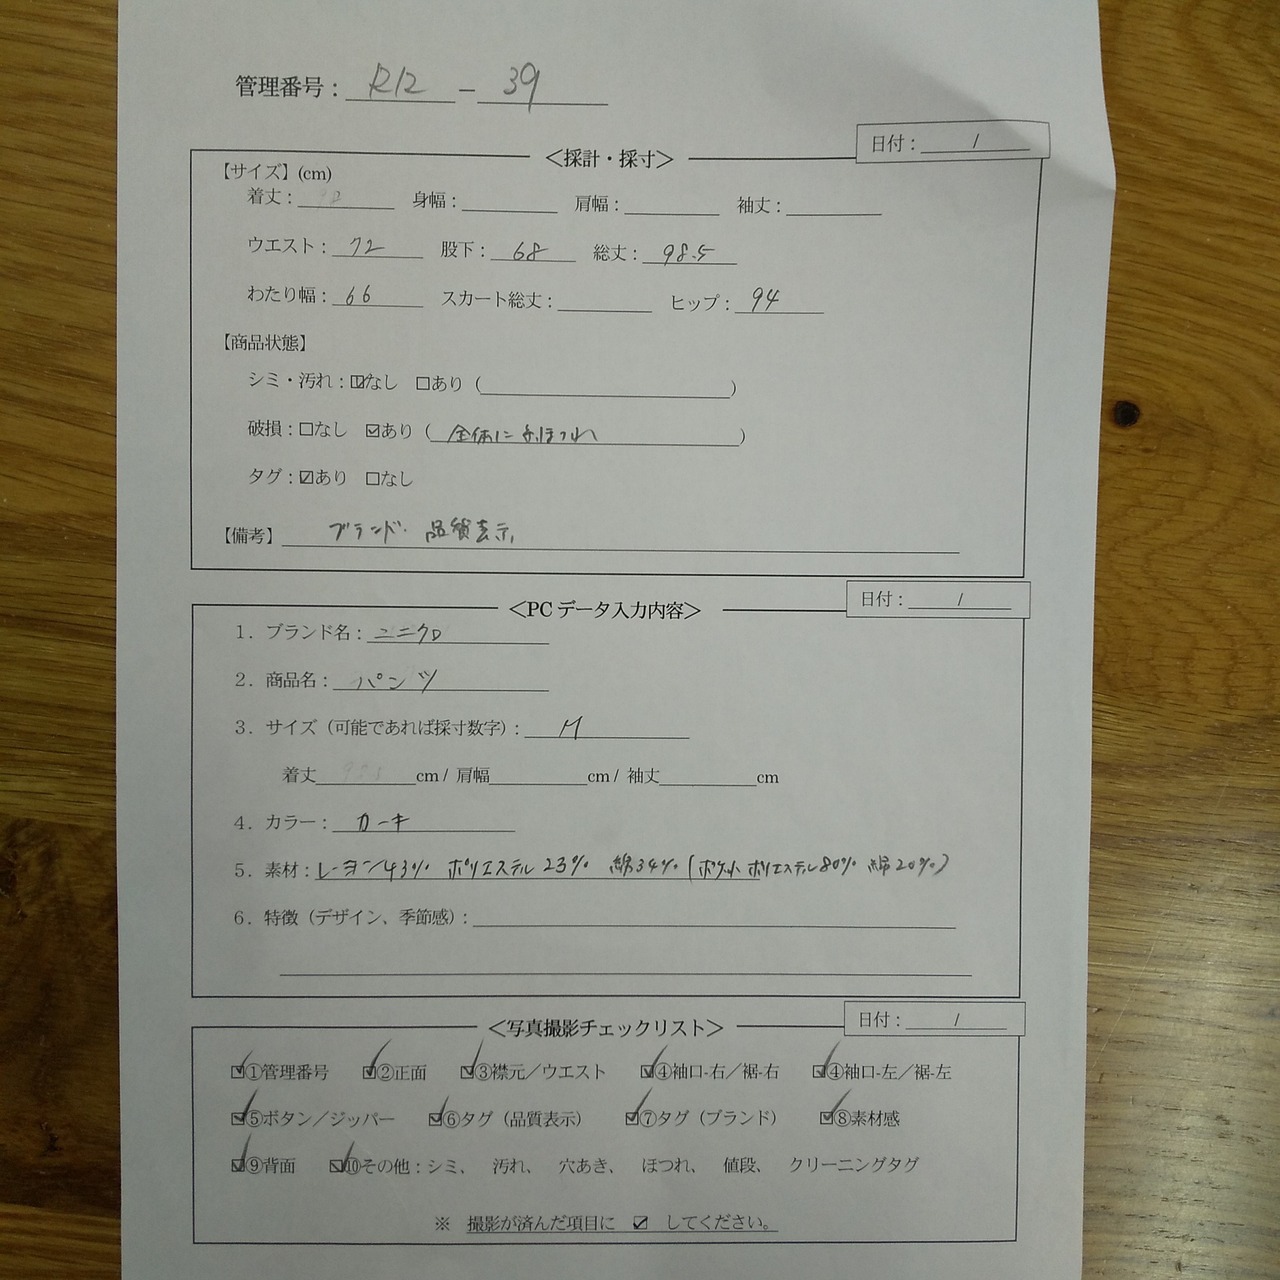 管理番号：R12 － 39
日付：　/
＜採計・採寸＞
【サイズ】(cm)
着丈：　身幅：　肩幅：　袖丈：
ウエスト：72　股下：68　総丈：98.5
わたり幅：66　スカート総丈：　ヒップ：94
【商品状態】
シミ・汚れ：☑なし　□あり（　）
破損：□なし　☑あり（全体に糸ほつれ）
タグ：☑あり　□なし
【備考】ブランド・品質表示
日付：　/
＜PC データ入力内容＞
1．ブランド名：ユニクロ
2．商品名：パンツ
3．サイズ（可能であれば採寸数字）：M
着丈　cm / 肩幅　cm / 袖丈　cm
4．カラー：カーキ
5．素材：レーヨン43% ポリエステル23% 綿34%(ポケット ポリエステル80% 綿20%)
6．特徴（デザイン、季節感）：
日付：　/
＜写真撮影チェックリスト＞
☑①管理番号　☑②正面　☑③襟元／ウエスト　☑④袖口-右／裾-右　☑④袖口-左／裾-左
☑⑤ボタン／ジッパー　☑⑥タグ（品質表示）　☑⑦タグ（ブランド）　☑⑧素材感
☑⑨背面　☑⑩その他：シミ、　汚れ、　穴あき、　ほつれ、　値段、　クリーニングタグ
※　撮影が済んだ項目に　☑　してください。